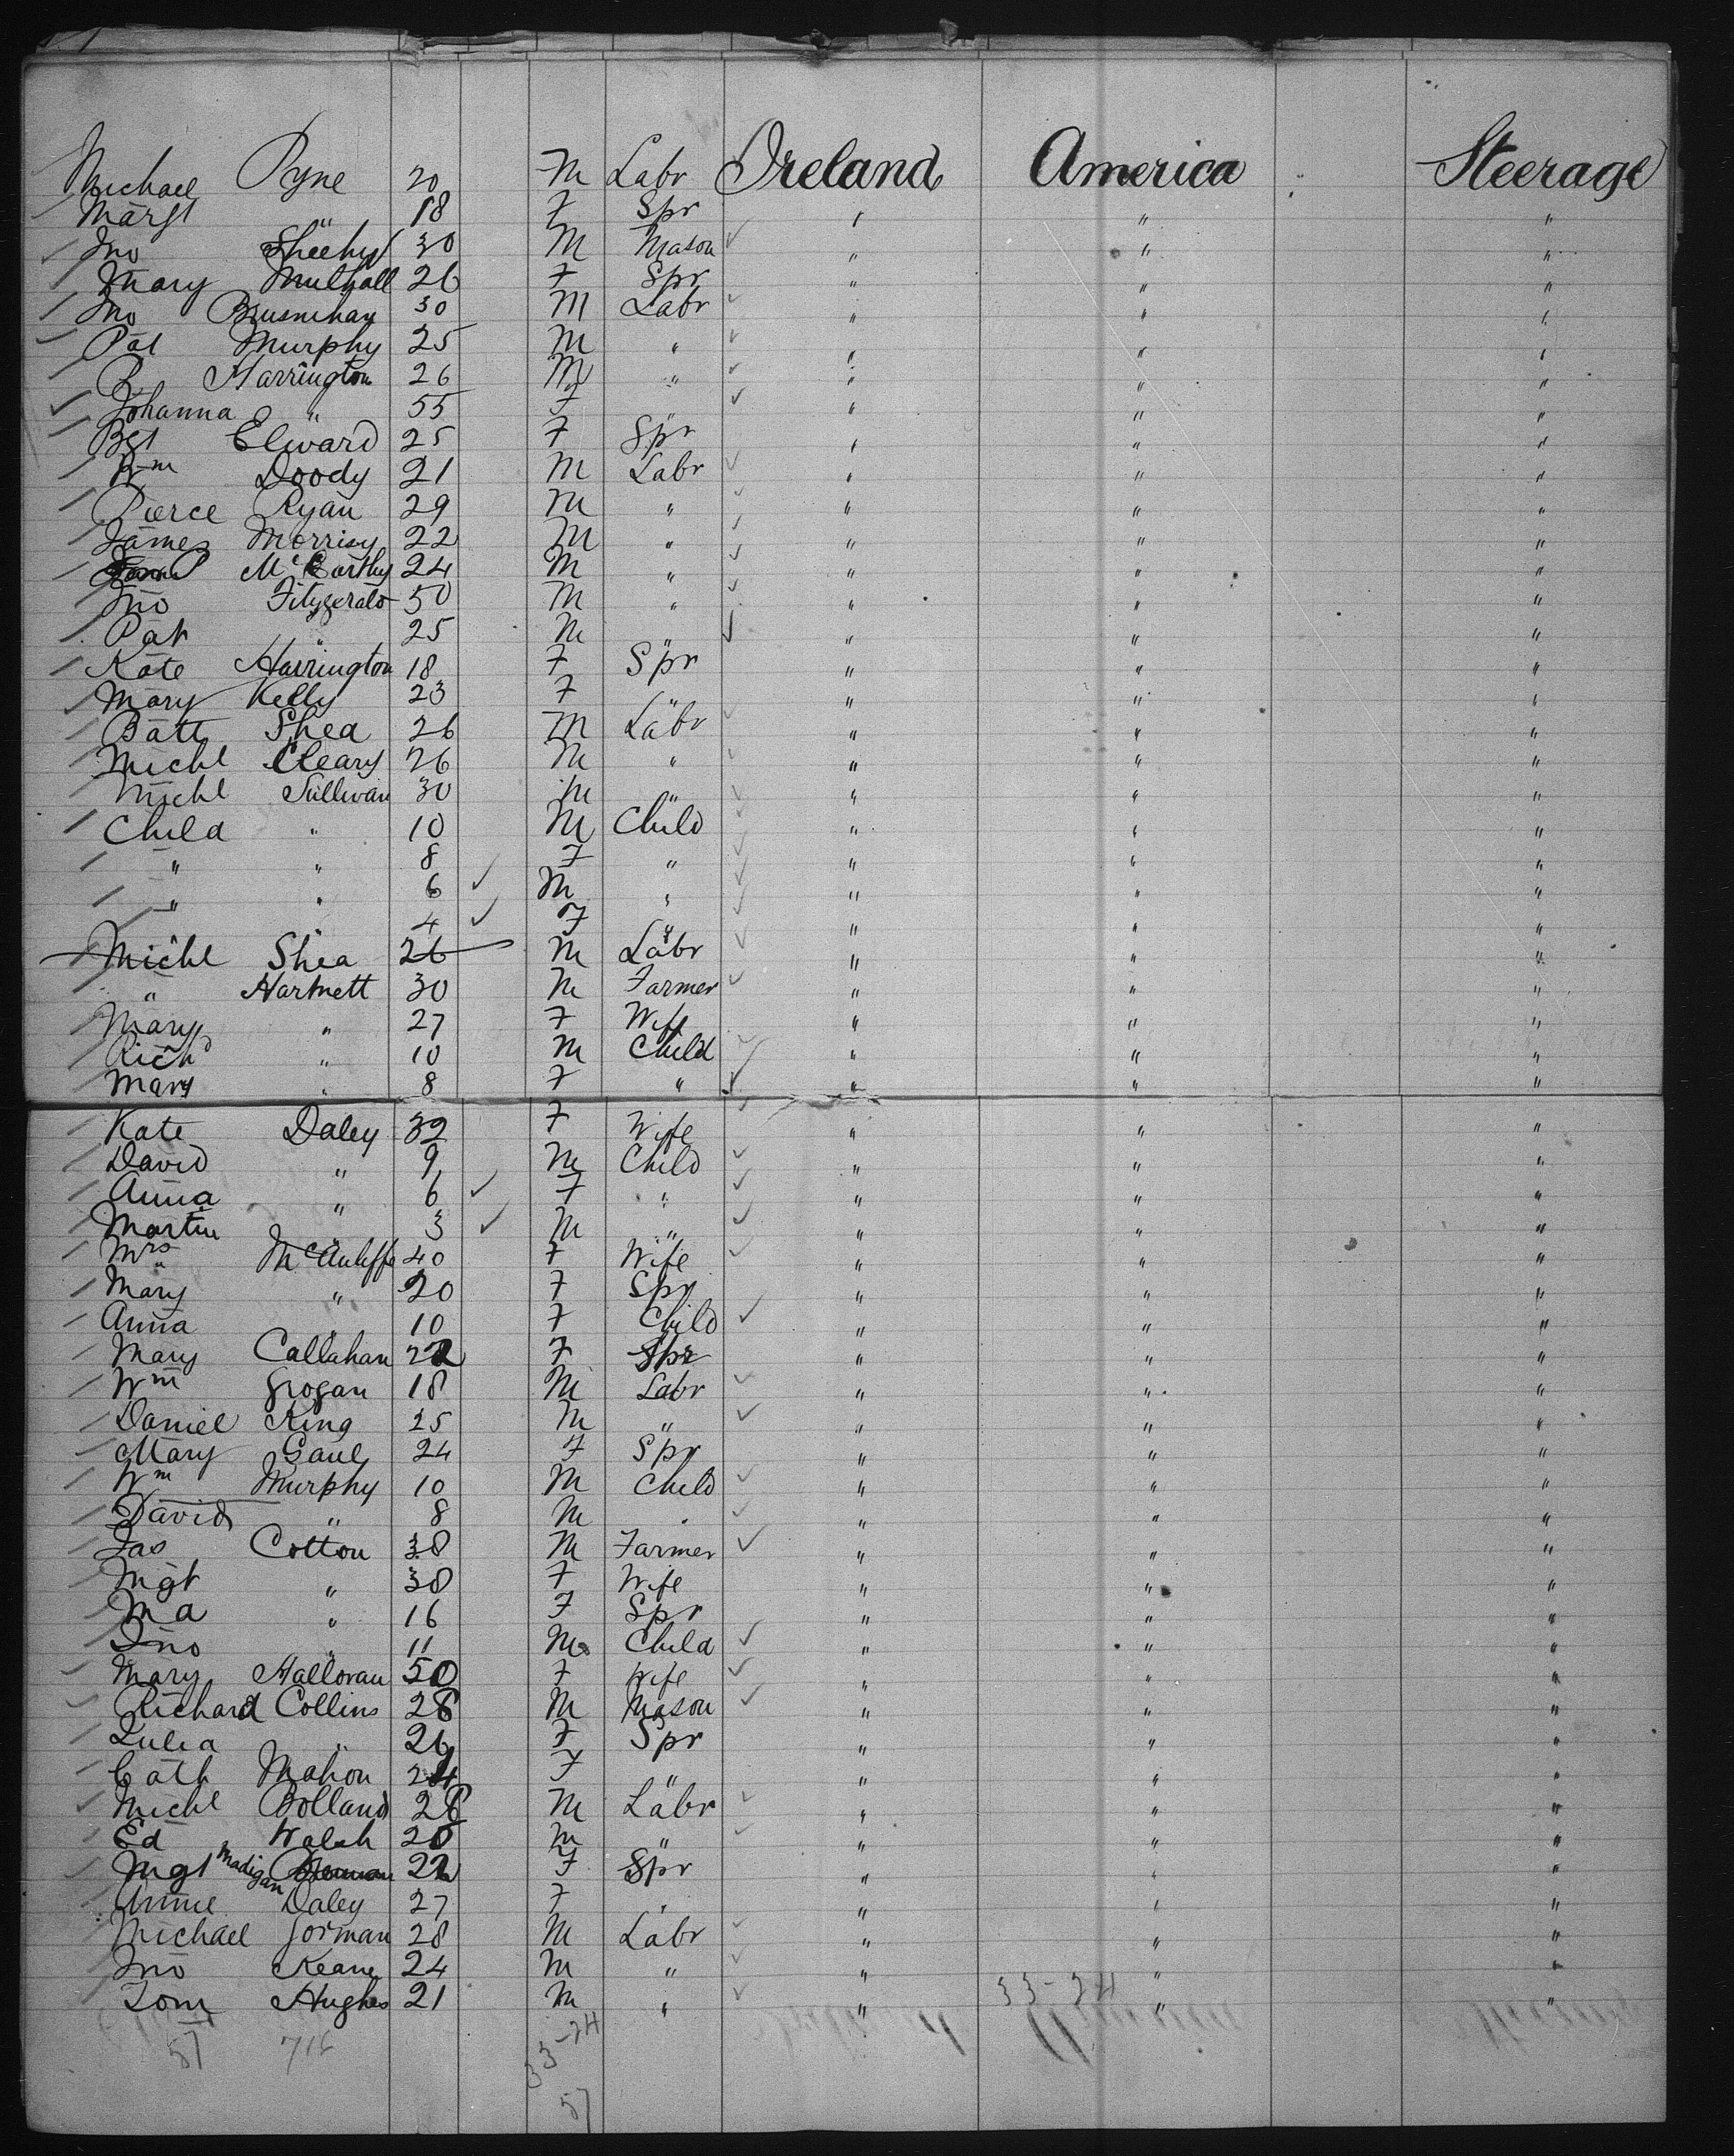 Michael Pyne 20 M Labr Ireland America Steerage
Margt " 18 F Spr " " "
Jno Sheehy 30 M Mason " " "
Mary Mulhall 26 F Spr " " "
Jno Brusnihan 30 M Labr " " "
Pat Murphy 25 M " " " "
P. Harrington 26 M " " " "
Johanna " 55 F " " "
Bgt Elward 25 F Spr " " "
Wm Doody 21 M Labr " " "
Pierce Ryan 29 M " " " "
James Morrisy 22 M " " " "
McCarthy 24 M " " " "
Jno Fitzgerald 50 M " " " "
Pat " 25 M " " " "
Kate Harrington 18 F Spr " " "
Mary Kelly 23 F " " " "
Batt Shea 26 M Labr " " "
Michl Cleary 26 M " " " "
Michl Sullivan 30 M " " " "
Child " 10 M Child " " "
" " 8 F " " " "
" " 6 M " " " "
" " 4 F " " " "
Michl Shea 26 M Labr " " "
" Hartnett 30 M Farmer " " "
Mary " 27 F Wife " " "
Richd " 10 M Child " " "
Mary " 8 F " " " "
Kate Daley 32 F Wife " " "
David " 9 M Child " " "
Anna " 6 F " " " "
Martin " 3 M " " " "
Mrs McAuliffe 40 F Wife " " "
Mary " 20 F Spr " " "
Anna " 10 F Child " " "
Mary Callahan 22 F Spr " " "
Wm Grogan 18 M Labr " " "
Daniel King 25 M " " " "
Mary Gaul 24 F Spr " " "
Wm Murphy 10 M Child " " "
David " 8 M " " " "
Jas Cotton 38 M Farmer " " "
Mgt " 38 F Wife " " "
Ma " 16 F Spr " " "
Jno " 11 M Child " " "
Mary Halloran 50 F Wife " " "
Richard Collins 28 M Mason " " "
Julia " 26 F Spr " " "
Cath Mahon 24 F " " " "
Michl Bolland 28 M Labr " " "
Ed Walsh 20 M " " " "
Mgt Madigan 22 F Spr " " "
Annie Daley 27 F " " " "
Michael Gorman 28 M Labr " " "
Jno Keane 24 M " " " "
Tom Hughes 21 M " " " "
33-24
57 716 33-24
57